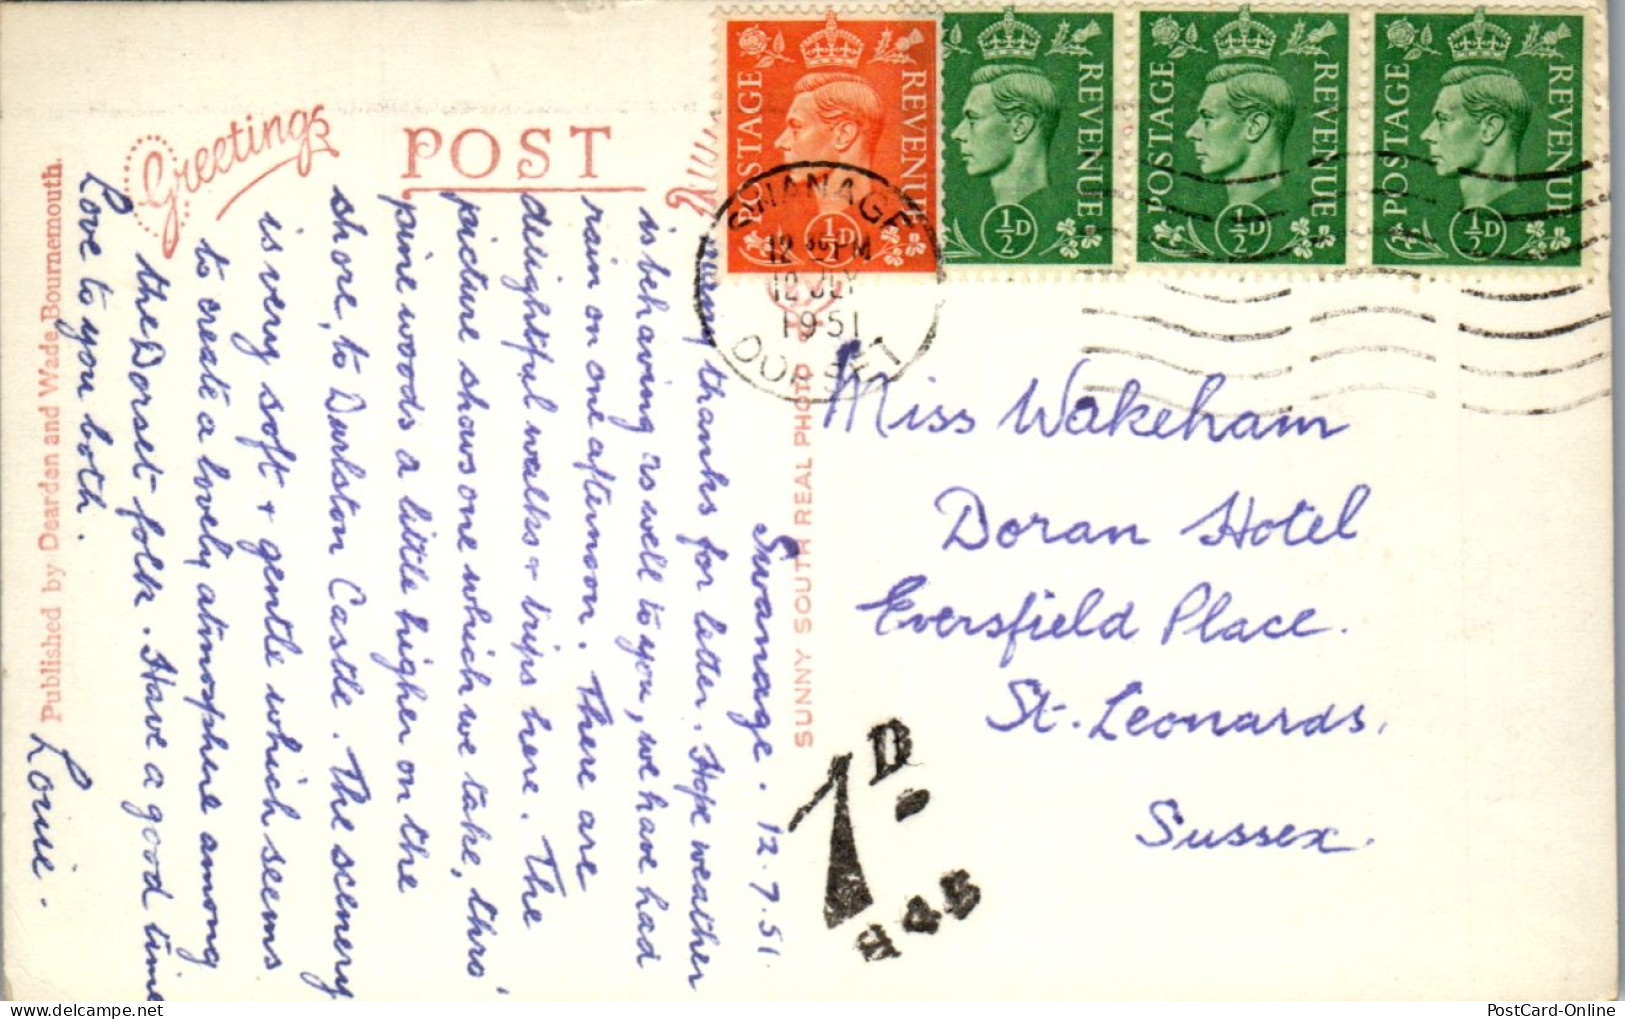 Greetings
POST
Published by Dearden and Wade, Bournemouth.
SUNNY SOUTH REAL PHOTO
POSTAGE REVENUE
½D
POSTAGE REVENUE
½D
POSTAGE REVENUE
½D
REVENUE
½D
SWANAGE
12 PM
12 JLY
1951
DORSET
Swanage. 12.7.51.
Many thanks for letter. Hope weather
is behaving as well to you, we have had
rain on one afternoon. There are
delightful walks & trips here. The
picture shows one which we take, thro'
pine woods a little higher on the
shore, to Durlston Castle. The scenery
is very soft & gentle which seems
to create a lovely atmosphere among
the Dorset folk. Have a good time
Love to you both.
Louie.
Miss Wakeham
Doran Hotel
Eversfield Place.
St. Leonards,
Sussex.
1D
H45
PostCard-Online